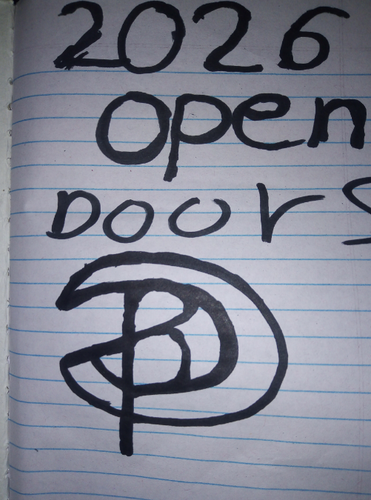 2026
open
DOOrS